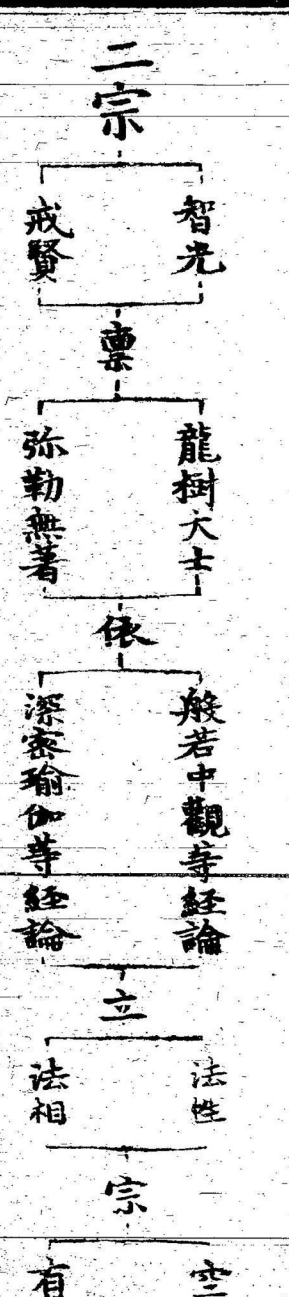 二宗
智光
戒賢
稟
龍樹大士
弥勒無著
依
般若中觀等経論
深密瑜伽等経論
立
法性
法相
宗
空
有